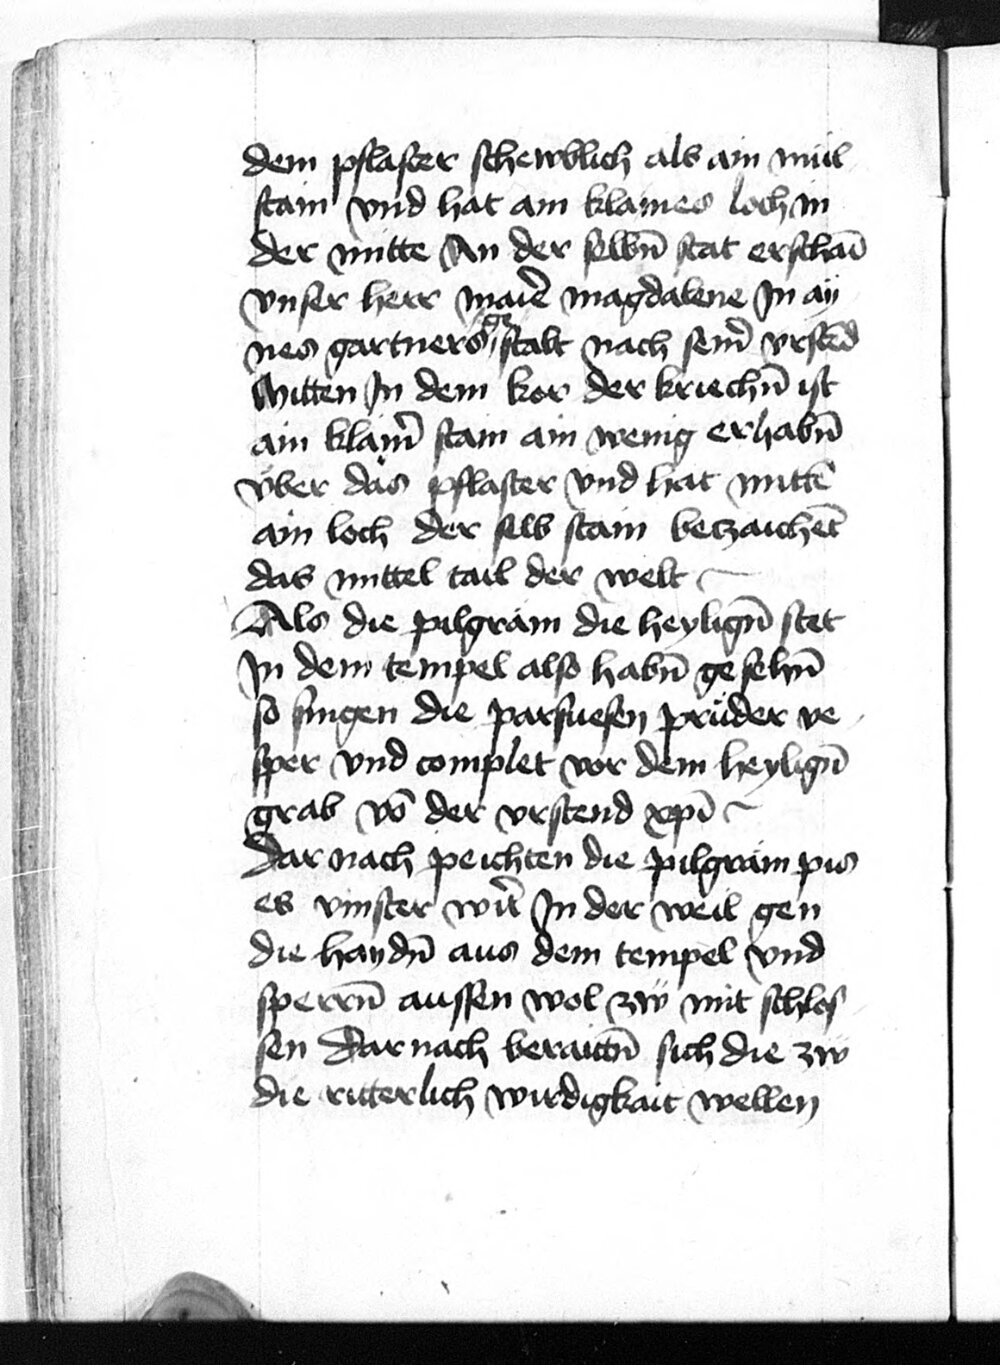 dem pflaster schewblich als ain mül
stain vnd hat ain klaines loch in
der mitte An der selbñ stat erschaī
vnser herr mariē magdalene In aÿ
nes gartners gestalt nach seīn̄ vrstēd
Mitten In dem kor der kriechñ ist
ain klaīn̄ stain ain wenig erhabñ
vber das pflaster vnd hat mittē
ain loch der selb stain betzaichēt
das mittel tail der welt
Als die pilgräm die heyligñ stet
In dem tempel also habñ gesehñ
so singen die parfuesen prüder ve
sper vnd complet vor dem heyligñ
grab vō der vrstend xp̄i
Dar nach peichten die pilgräm pis
es vinster wirt In der weil gen
die haydñ aus dem tempel vnd
sperrñ aussen wol zw mit schlos
sen Dar nach beraittñ sich die zw
die ritterlich wirdigkait wellen